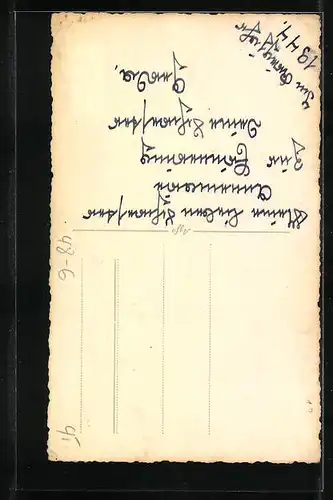 Meiner lieben Schwester
Annemarie
Zur
Erinnerung
Deine Schwester
Gerda.
1944.
48-6